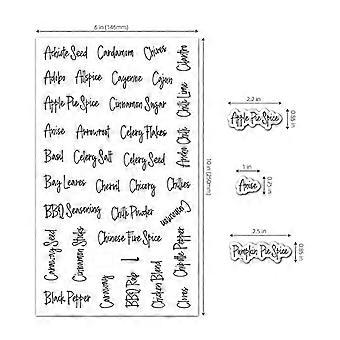 6 in (146mm)
Achiote Seed Cardamom Chives Cilantro
Adobo Allspice Cayenne Cajun
Apple Pie Spice Cinnamon Sugar Chili Lime
Anise Arrowroot Celery Flakes
Basil Celery Salt Celery Seed Ancho Chili
Bay Leaves Chervil Chicory Chillies
BBQ Seasoning Chili Powder Cinnamon
Caraway Seed Cinnamon Sticks Chinese Five Spice Chipotle Pepper
Black Pepper Caraway BBQ Rub Chicken Blend Cloves
10 in (250mm)
2.2 in
Apple Pie Spice
0.55 in
1 in
Anise
0.25 in
2.5 in
Pumpkin Pie Spice